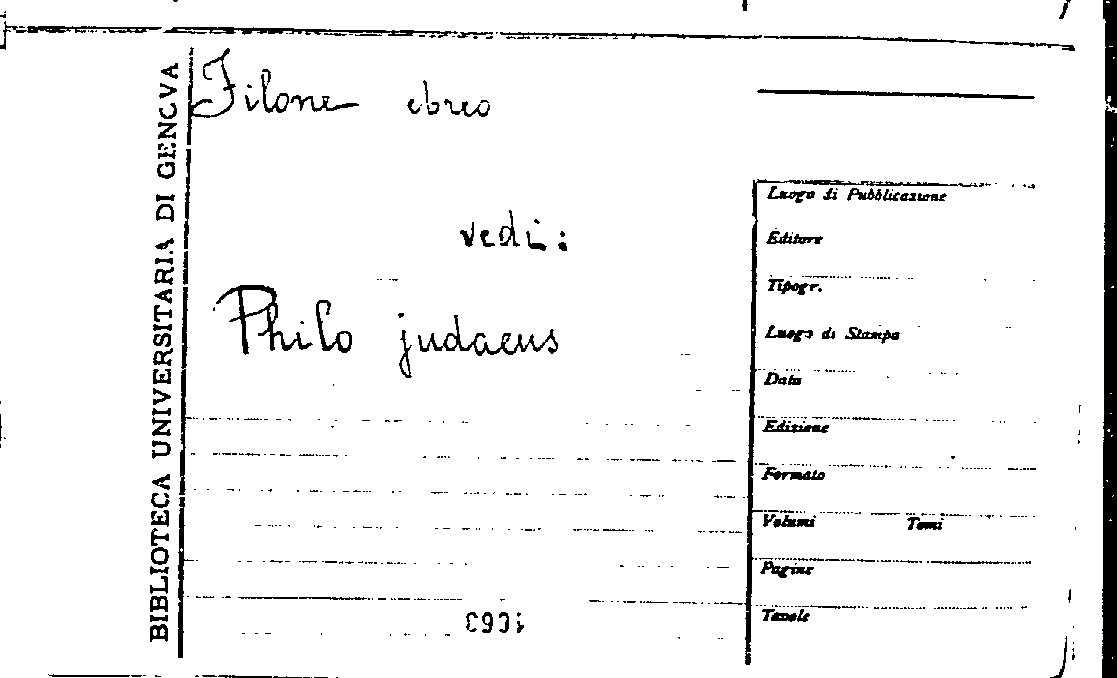 BIBLIOTECA UNIVERSITARIA DI GENOVA
Filone ebreo
vedi:
Philo judaeus
Luogo di Pubblicazione
Editore
Tipogr.
Luogo di Stampa
Data
Edizione
Formato
Volumi Tomi
Pagine
Tavole